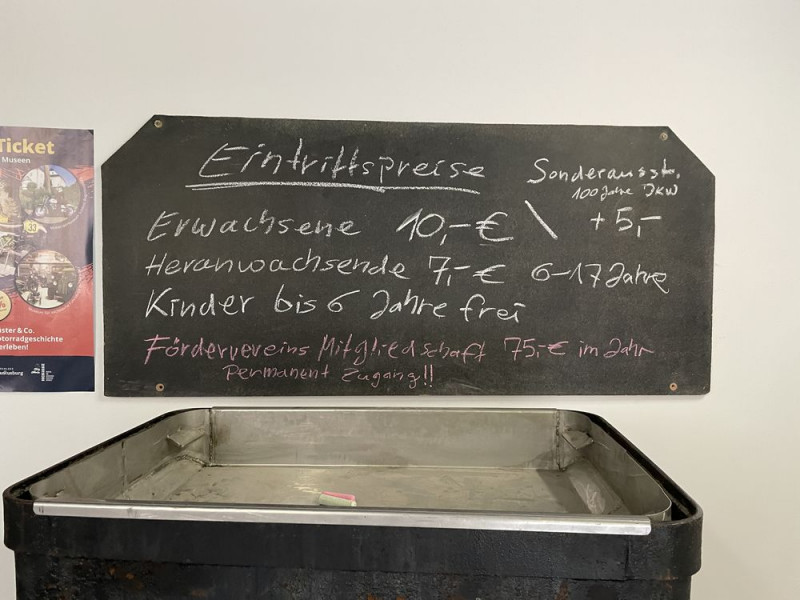 Ticket
Museen
33
uster & Co.
otorradgeschichte
erleben!
Eintrittspreise
Sonderausst.
100 Jahre DKW
Erwachsene 10,-€ \ + 5,-
Heranwachsende 7,-€ 6-17 Jahre
Kinder bis 6 Jahre frei
Fördervereins Mitgliedschaft 75,-€ im Jahr
Permanent Zugang!!